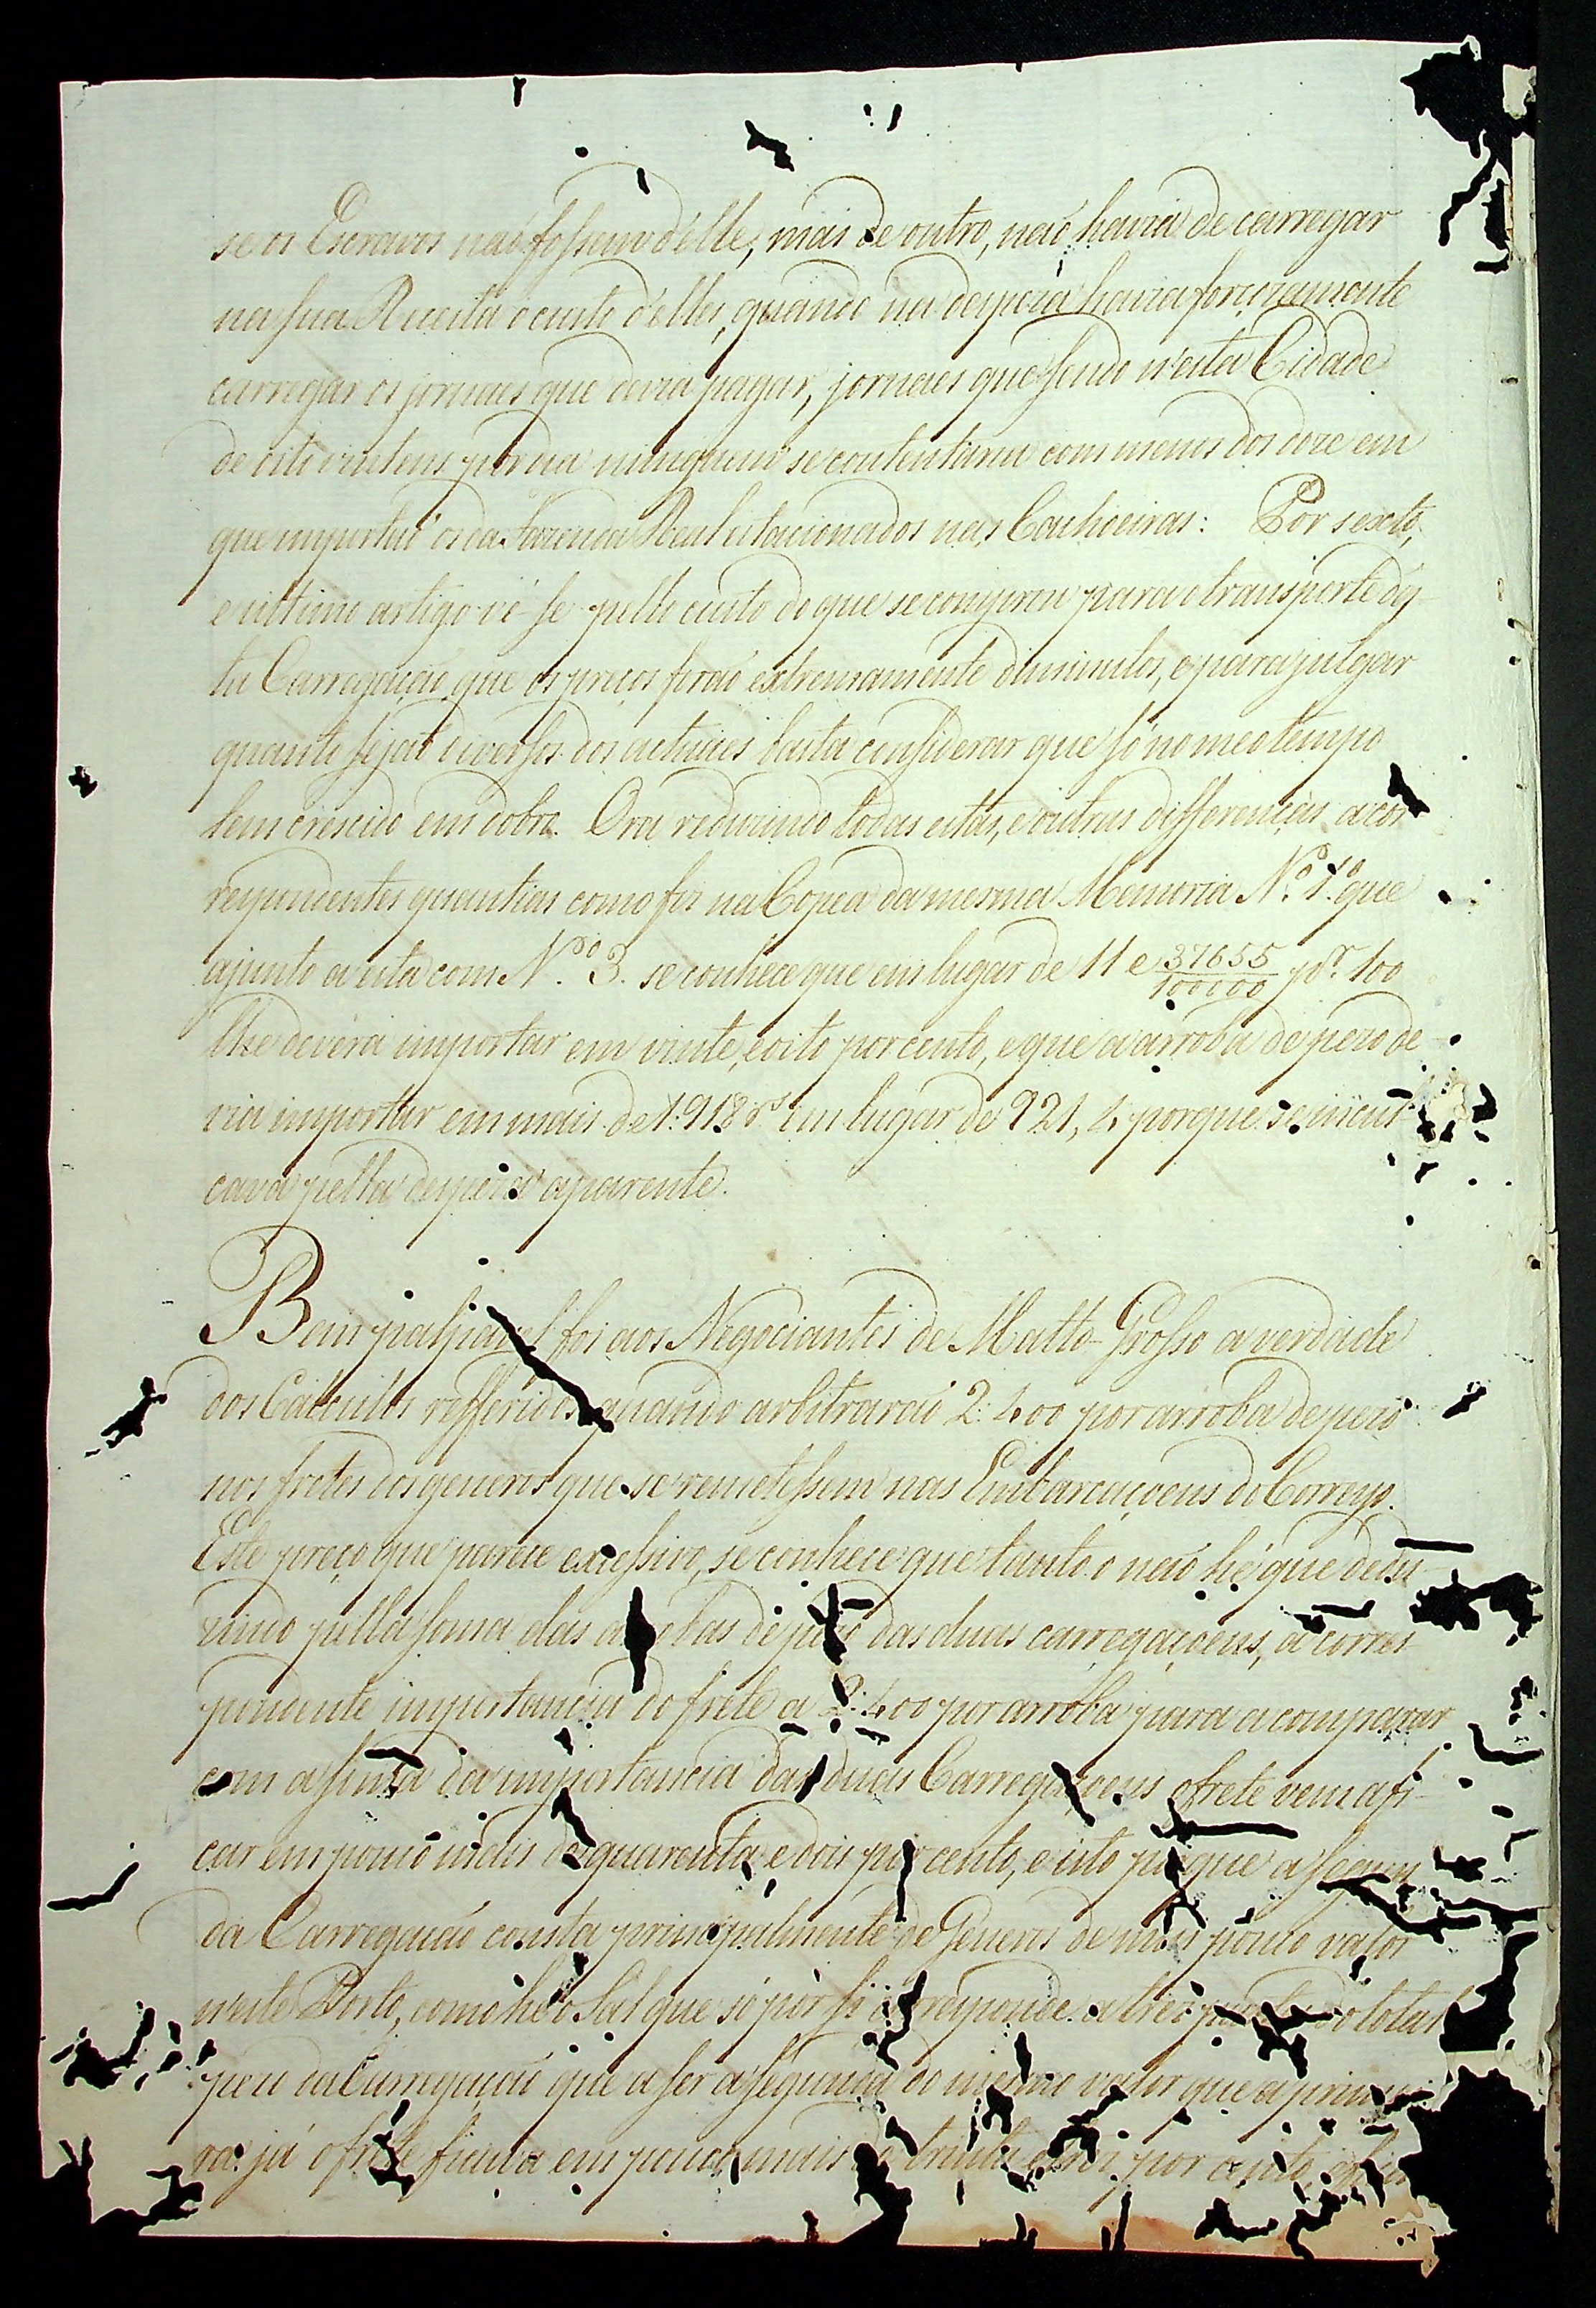 se os Escravos naõ fossem d'elle, mas de outro, naõ havia de carregar
na sua Receita o custo d'elles, quando na despeza havia forçozamente
carregar os jornaes que devia pagar, jornaes que sendo n'esta Cidade
de oito vintens por dia ninguem se contentaria com menos dos doze em
que importaõ os da Fazenda Real estacionados nas Cachoeiras: Por sexto,
e ultimo artigo vê-se pello custo do que se comprou para o transporte des-
ta Carregaçaõ que os preços foraõ extremamente diminutos, e para julgar
quanto sejaõ diversos dos actuaes basta considerar que só no meo tempo
tem crescido em dobro. Ora reduzindo todas estas, e outras differenças a cor
respondentes quantias como fiz na Copea da mesma Memoria N.º 1.º que
ajunto a esta com N.º 3. se conhece que em lugar de 11 e 37655/100000 p.r 100
lhe deveria importar em vinte, e oito por cento, e que a arroba de pezo de
via importar em mais de 1:918 r.s em lugar de 921,4 porque se incul-
cava pella despeza aparente.
Bem palpavel foi aos Negociantes de Matto-Grosso a verdade
dos Calculos refferidos quando arbitraraõ 2:400 por arroba de pezo
nos fretes dos generos que se remetessem nas Embarcaçoens do Correyo.
Este preço que parece excessivo, se conhece que tanto o naõ hé que dedu-
zindo pella soma das arrobas de pezo das duas carregaçoens, a corres-
pondente importancia do frete a 2:400 por arroba para a comparar
com a soma da importancia das duas Carregaçoens o frete vem a fi-
car em pouco mais de quarenta e dois por cento, e isto porque a segun
da Carregaçaõ consta principalmente de Generos de mui pouco valor
n'este Porto, como hé o Sal que só por si corresponde a tres do total
pezo da Carregaçaõ que a ser a segunda do mesmo valor que a primei
ra já o frete ficava em pouco mais de trinta por cento,